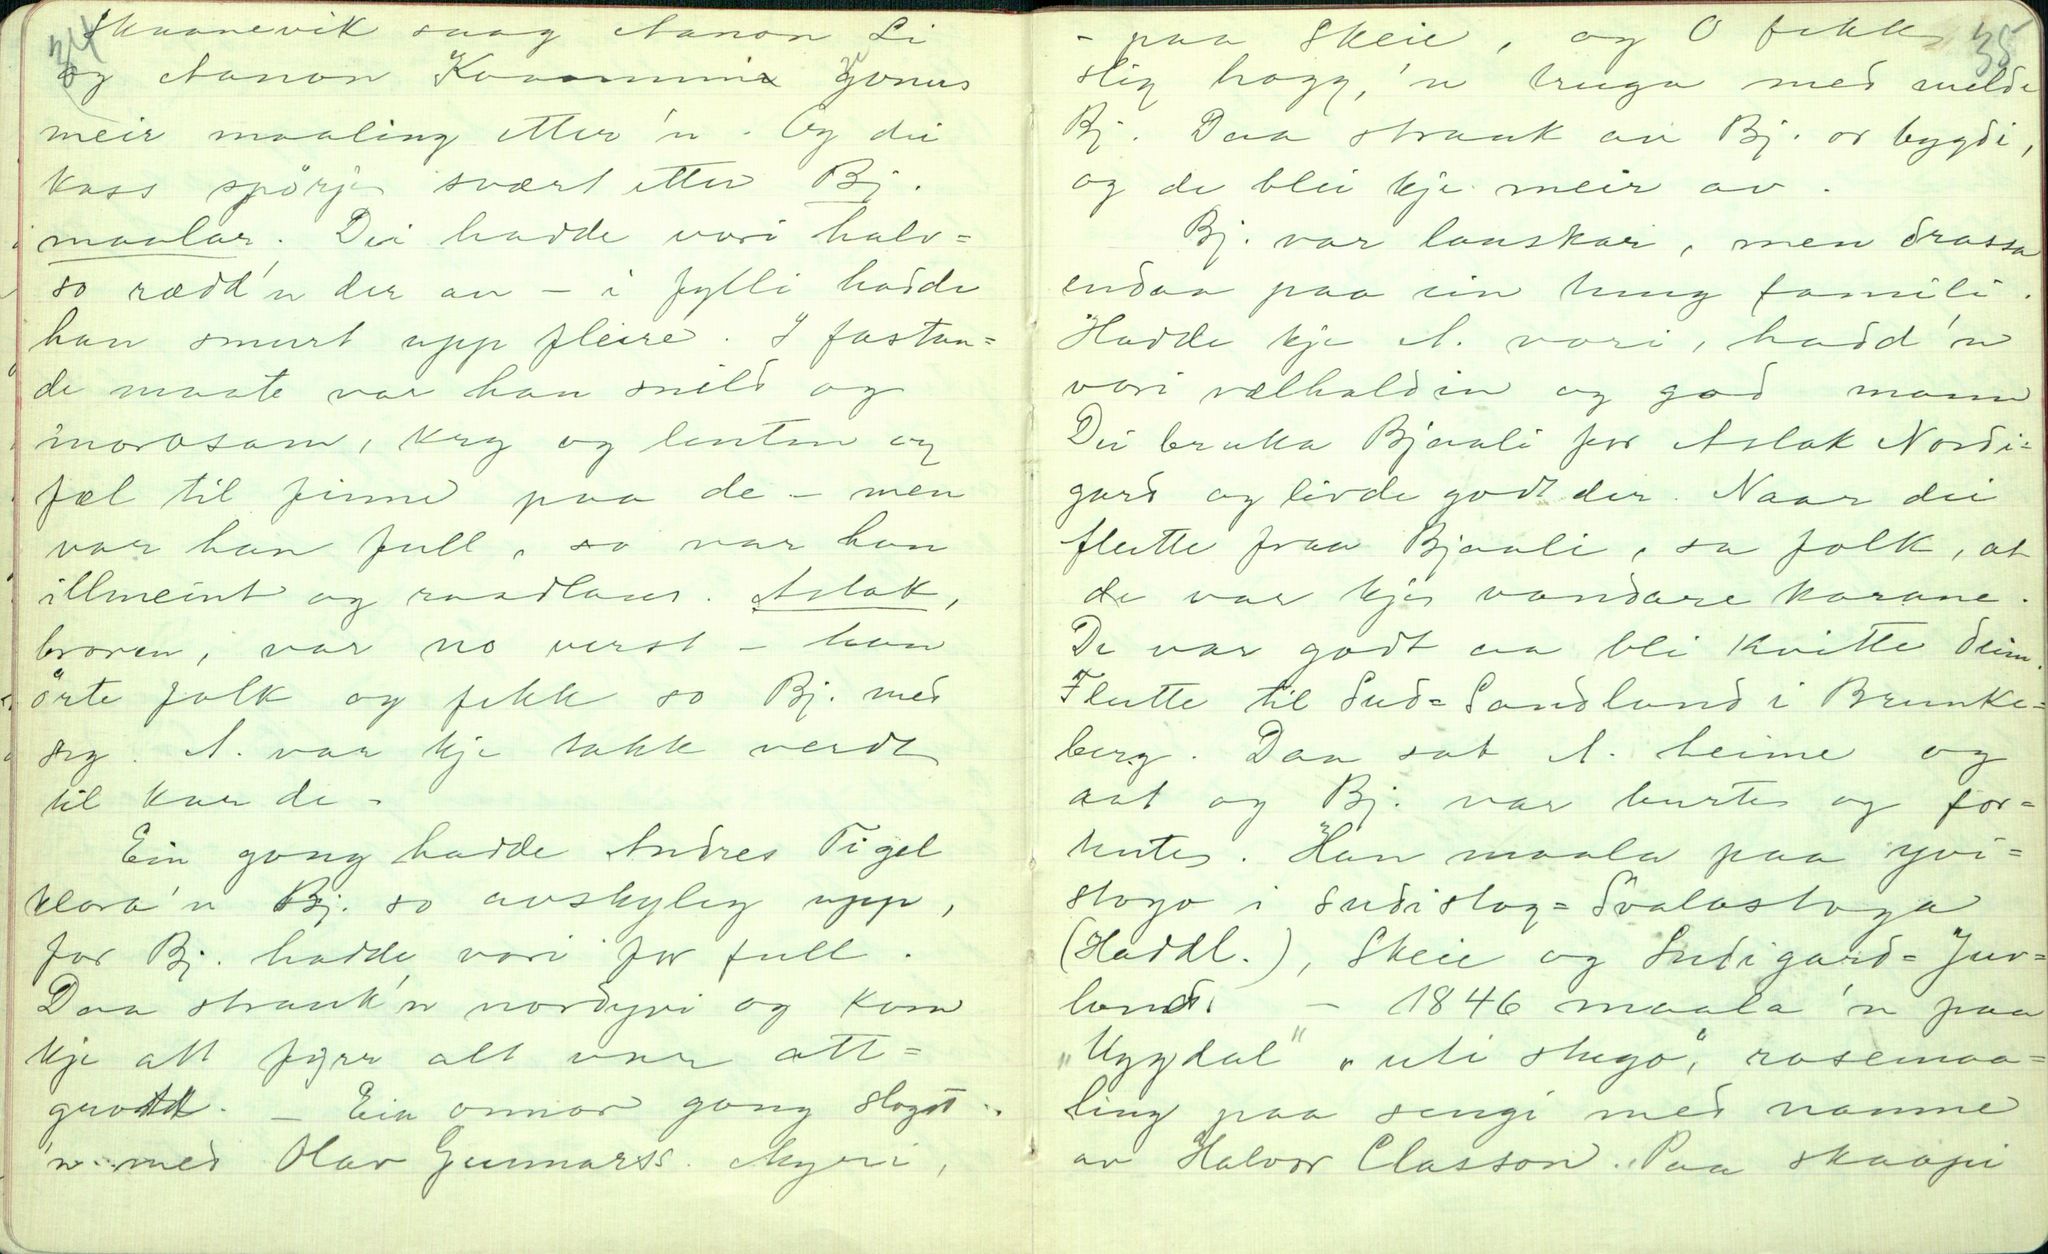 34
Skaanevik saag Aanon Li
og Aanon
meir maaling etter'n. Og dei
kass spörje svært etter Bj.
maalar. Dei hadde vori halv=
so rædd'n der au - i fylli hadde
han smurt upp fleire. I fastan=
de maate var han snild og
morosam, kry og lenten og
fæl til finne paa de - men
var han full, so var han
illmeint og raadlaus. Aslak,
broren, var no verst - han
örte folk og fekk so Bj. med
seg. A. var kje takk verdt
til kar de -
Ein gong hadde Andres Tigel
klora'n Bj. so avskyleg upp,
for Bj. hadde vori for full.
Daa strauk'n nordyvi og kom
kje att fyrr alt var att=
grodd. - Ein annar gong slogst
'n med Olav Gunnarss. Myri,
35
- paa Skeie, og O fekk
slig hogg, 'n truga med melde
Bj. Daa strauk au Bj. or bygdi,
og de blei kje meir av.
Bj. var lauskar, men drassa
endaa paa ein tung famili.
Hadde kje A. vori, hadd'n
vori velhaldin og god mann
Dei bruka Bjaali for Aslak Nordi=
gard og livde godt der. Naar dei
flutte fraa Bjaali, sa folk, at
de var kje vandare karane.
De var godt aa bli kvitte deim.
Flutte til Sud=Sandland i Brunke=
berg. Daa sat A. heime og
aat og Bj. var burte og for=
tente. Han maala paa yvi=
stogo i Sudistog=Svalastoga
(Haddl.), Skeie og Sudigard=Juv=
land. - 1846 maala'n paa
"Uggdal" "uti stugo", rosemaa=
ling paa sengi med namne
av Halvor Classon. Paa skaapi